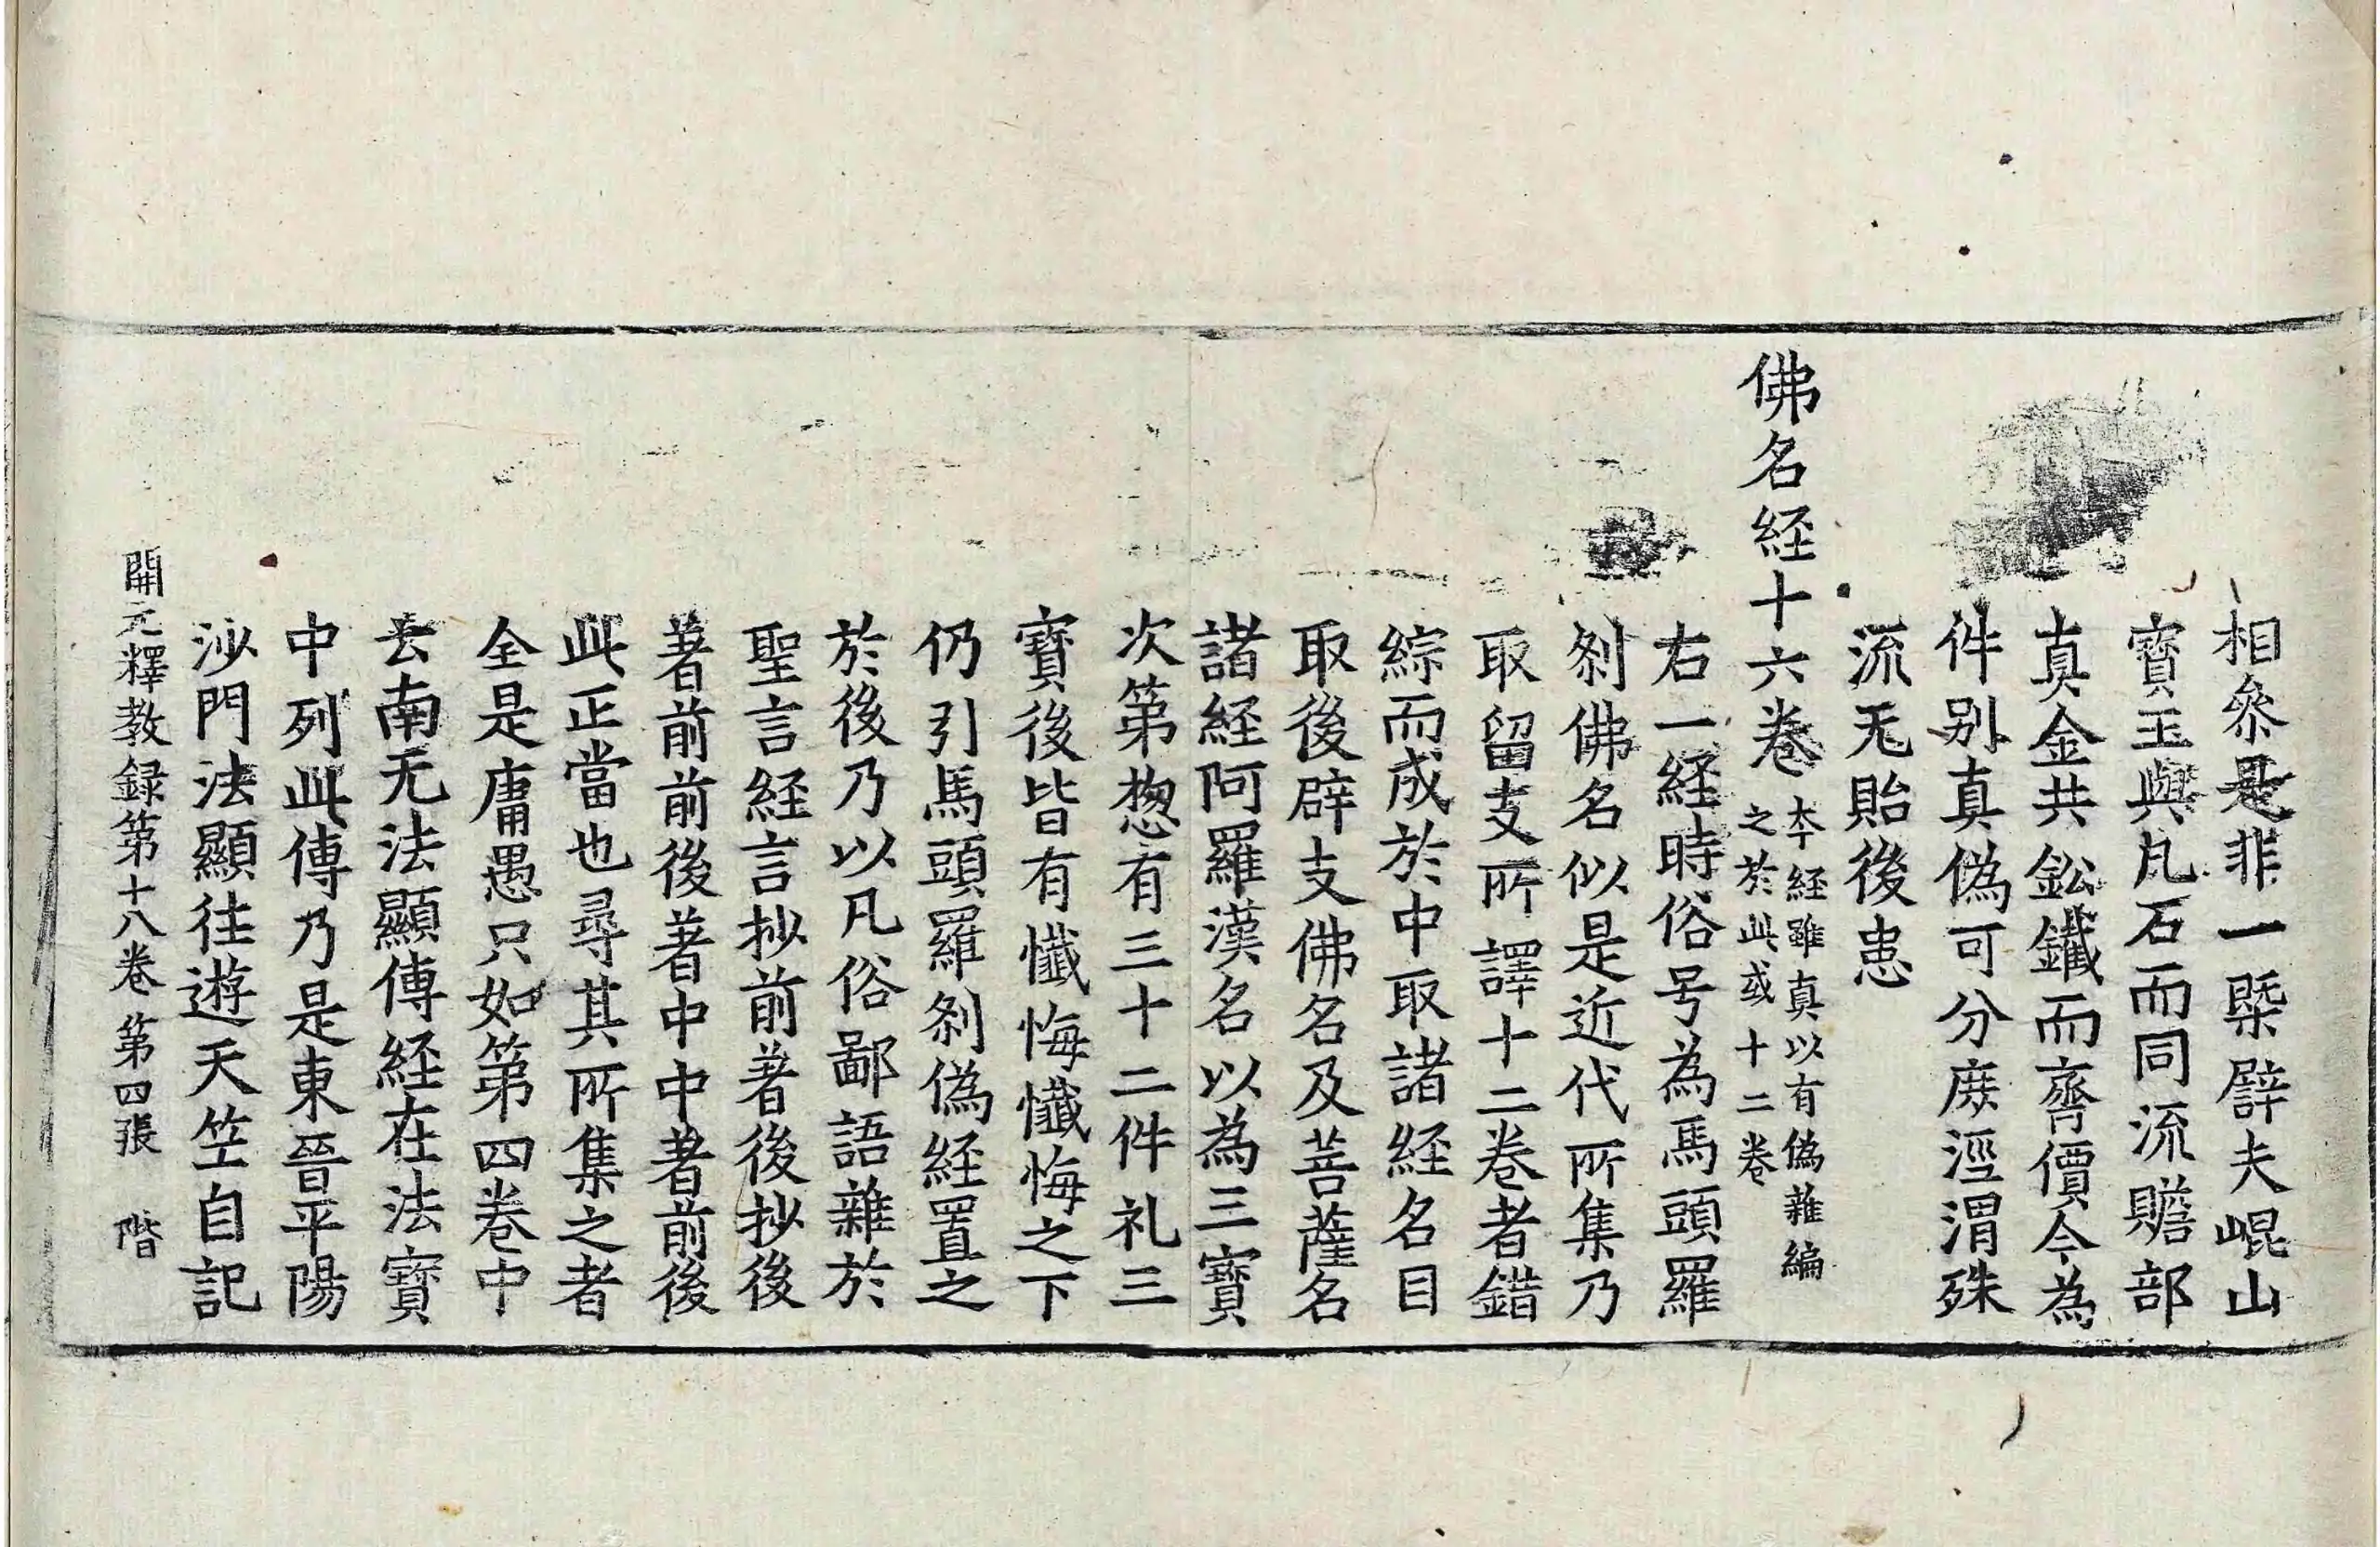 相叅是非一槩辟夫崐山
寳玉與凡石而同流贍部
真金共鈆鐵而齊價今為
件别真偽可分庻涇渭殊
流无貽後患
佛名経十六卷
夲経雖真以有偽雜編
之於此或十二卷
右一経時俗号為馬頭羅
刹佛名似是近代所集乃
取留支所譯十二卷者錯
綜而成於中取諸経名目
取後辟支佛名及菩薩名
諸経阿羅漢名以為三寳
次第揔有三十二件礼三
寳後皆有懺悔懺悔之下
仍引馬頭羅刹偽経置之
於後乃以凡俗鄙語雜於
聖言経言抄前著後抄後
著前前後著中中著前後
此正當也尋其所集之者
全是庸愚只如第四卷中
云南无法顯傳経在法寳
中列此傳乃是東晉平陽
沙門法顯往遊天竺自記
開元釋教録第十八卷 第四張 階